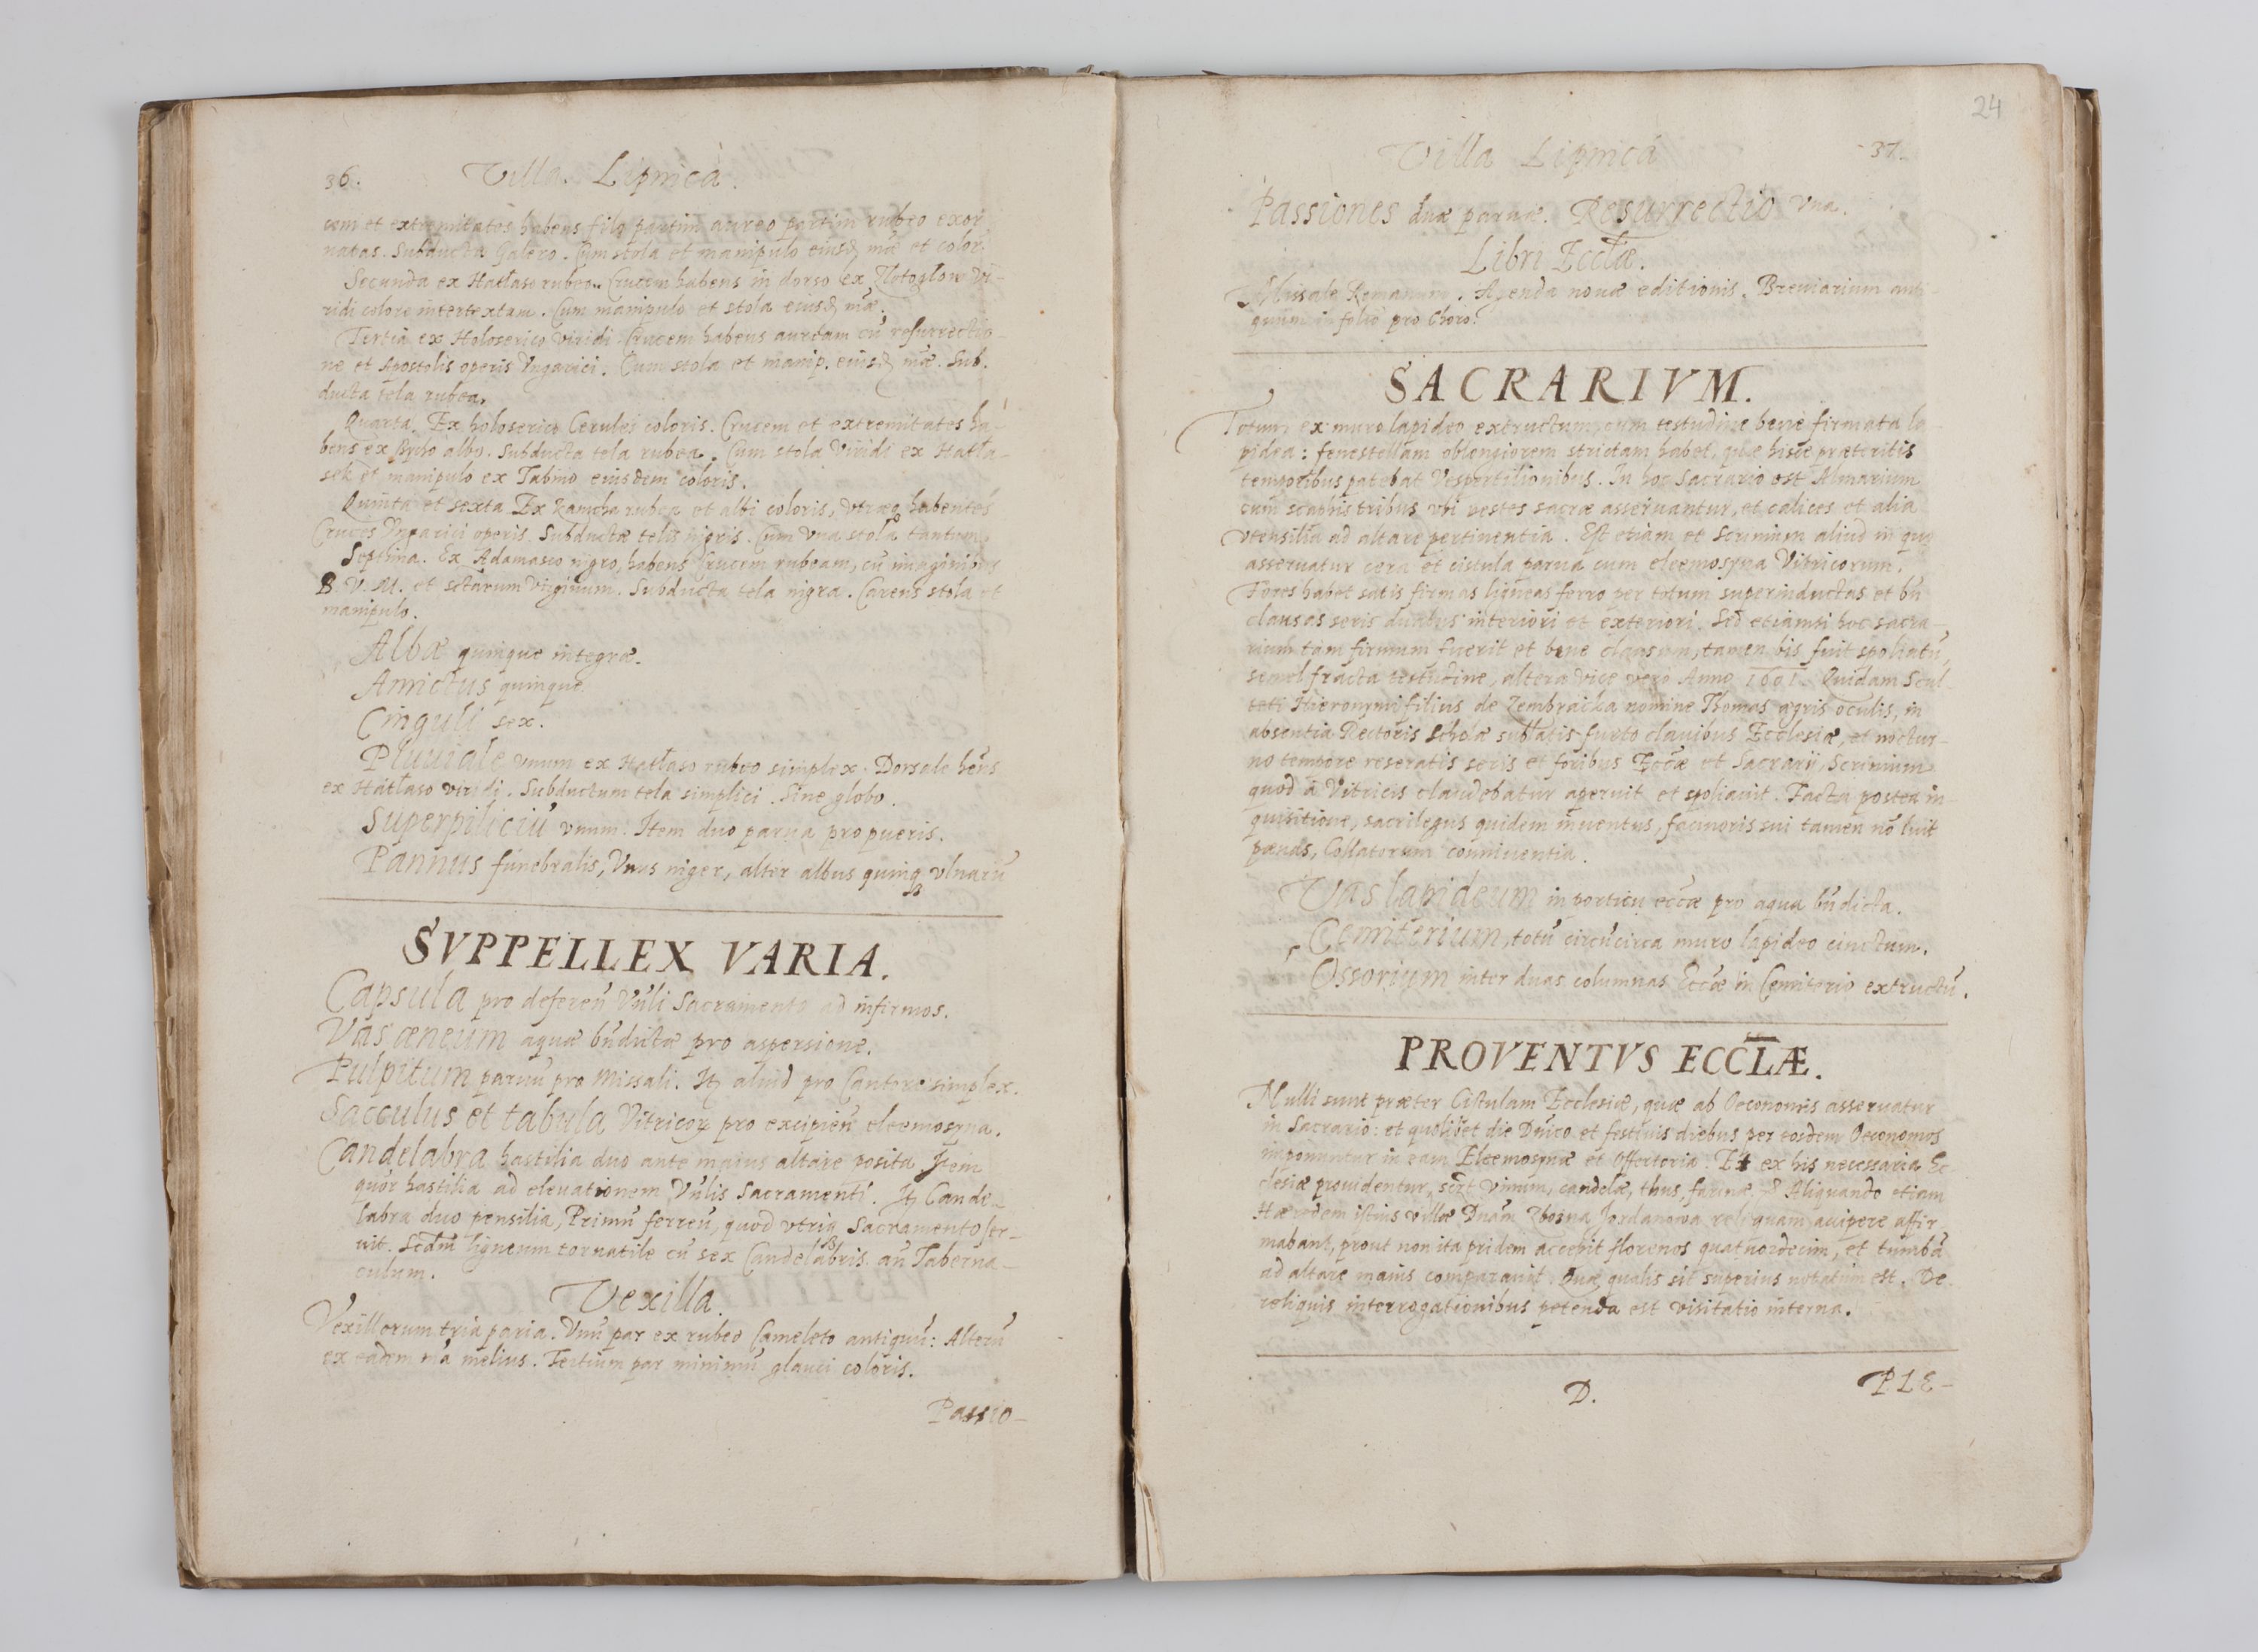 36. Villa. Lipnica.
cem et extremitates habens filo partim aureo partim rubeo exor
natas. Subducta Galero. Cum stola et manipulo eiusd mae et color.
Secunda ex Hatłaso rubeo. Crucem habens in dorso ex Złotogłow vi-
ridi colore intertextam. Cum manipulo et stola eiusd mae.
Tertia ex Holoserico viridi Crucem habens auream cū resurrectio
ne et Apostolis operis Vngarici. Cum stola et manip. eiusd mae. Sub.
ducta tela rubea.
Quarta. Ex holoserico Cerulei coloris. Crucem et extremitates ha-
bens ex albo. Subducta tela rubea. Cum stola Viridi ex Hatła-
sek et manipulo ex Tabino eiusdem coloris.
Quinta et sexta Ex kamcha rubea et albi coloris, vtraeq habentes
Cruces Vngarici operis. Subductae telis nigris. Cum vna stola tantum.
Septima. Ex Adamasco nigro, habens Crucem rubeam, cū imaginibus
B. V. M. et sctarum Virginum. Subducta tela nigra. Carens stola et
manipulo.
Albae quinque integrae.
Amictus quinque.
Cinguli sex.
Pluuiale vnum ex Hatłaso rubeo simplex. Dorsale hens
ex Hatłaso viridi. Subductum tela simplici. Sine globo.
Superpiliciū vnum. Item duo parua pro pueris.
Pannus funebralis, Vnus niger, alter albus quinq vlnarū
SVPPELLEX VARIA.
Capsula pro deferen Vnli Sacramento ad infirmos.
Vas aeneum aquae bndictae pro aspersione.
Pulpitum paruū pro Missali. It aliud pro Cantore simplex.
Sacculus et tabula Vitricor pro excipien eleemosyna.
Candelabra hastilia duo ante maius altare posita. Item
quor hastilia ad eleuationem Vnlis Sacramenti. It Cande-
labra duo pensilia, Primū ferreū, quod vtriq Sacramento ser-
uit. Scdm ligneum tornatile cū sex Candelabris an Taberna-
culum.
Vexilla.
Vexillorum tria paria. Vnū par ex rubeo Cameleto antiquū: Alterū
ex eadem ma melius. Tertium par minimū glauci coloris.
Passio-
24
Villa Lipnica 37.
Passiones duae paruae. Resurrectio vna.
Libri Eccłae.
Missale Romanum. Agenda nouae editionis. Breuiarium anti-
quum in folio pro Choro.
SACRARIVM.
Totum ex muro lapideo extructum, cum testudine bene firmata la-
pidea: fenestellam oblongiorem strictam habet, quae hisce praeteritis
temporibus patebat Vespertilionibus. In hoc Sacrario est Almarium
cum scaphis tribus vbi vestes sacrae asseruantur, et calices et alia
vtensilia ad altare pertinentia. Est etiam et Scrinium aliud in quo
asseruatur cera et cistula parua cum eleemosyna Vitricorum.
Fores habet satis firmas ligneas ferro per totum superinductas et bn
clausas seris duabus interiori et exteriori. Sed etiamsi hoc sacra-
rium tam firmum fuerit et bene clausum, tamen bis fuit spoliatū,
semel fracta testudine, altera vice vero Anno 1601. Quidam Scul-
teti Hieronymi filius de Zembracka nomine Thomas aegris oculis, in
absentia Rectoris Scholae sublatis furto clauibus Ecclesiae, et noctur-
no tempore reseratis seris et foribus Eccae et Sacrarii, Scrinium
quod a Vitricis claudebatur aperuit et spoliauit. Facta postea in-
quisitione, sacrilegus quidem inuentus, facinoris sui tamen nō luit
paenas, Collatorum conniuentia.
Vas lapideum in porticu eccae pro aqua bndicta.
Cemiterium, totū circūcirca muro lapideo cinctum.
Ossorium inter duas columnas Eccae in Cemiterio extructū.
PROVENTVS ECCLÆ.
Nulli sunt praeter Cistulam Ecclesiae, quae ab Oeconomis asseruatur
in Sacrario: et quolibet die Dnico et festiuis diebus per eosdem Oeconomos
imponuntur in eam Eleemosynae et Offertoria. Et ex his necessaria Ec
clesiae prouidentur, sczt vinum, candelae, thus, farinae. Aliquando etiam
Haeredem istius villae Dnam Zboina Jordanowa reliquam accipere affir
mabant, prout non ita pridem accepit florenos quatuordecim, et tumbā
ad altare maius comparauit. Quae qualis sit superius notatum est. De
reliquis interrogationibus petenda est visitatio interna.
D. PLE-